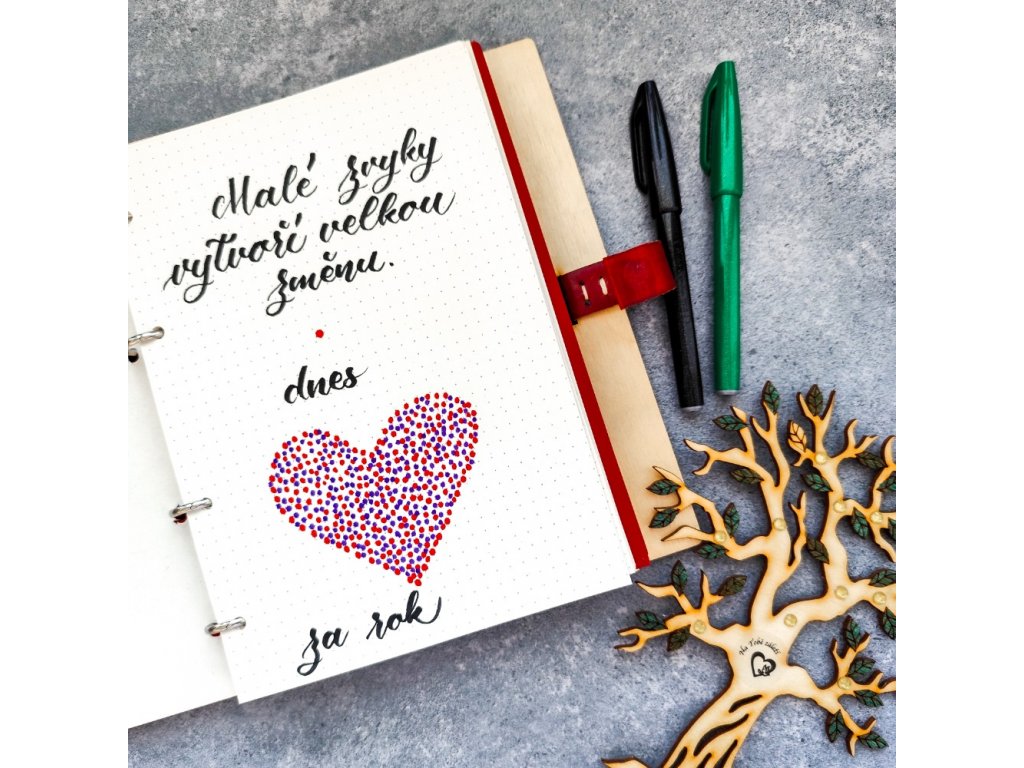 Malé zvyky
vytvoří velkou
změnu.
dnes
za rok
Na Tobě záleží